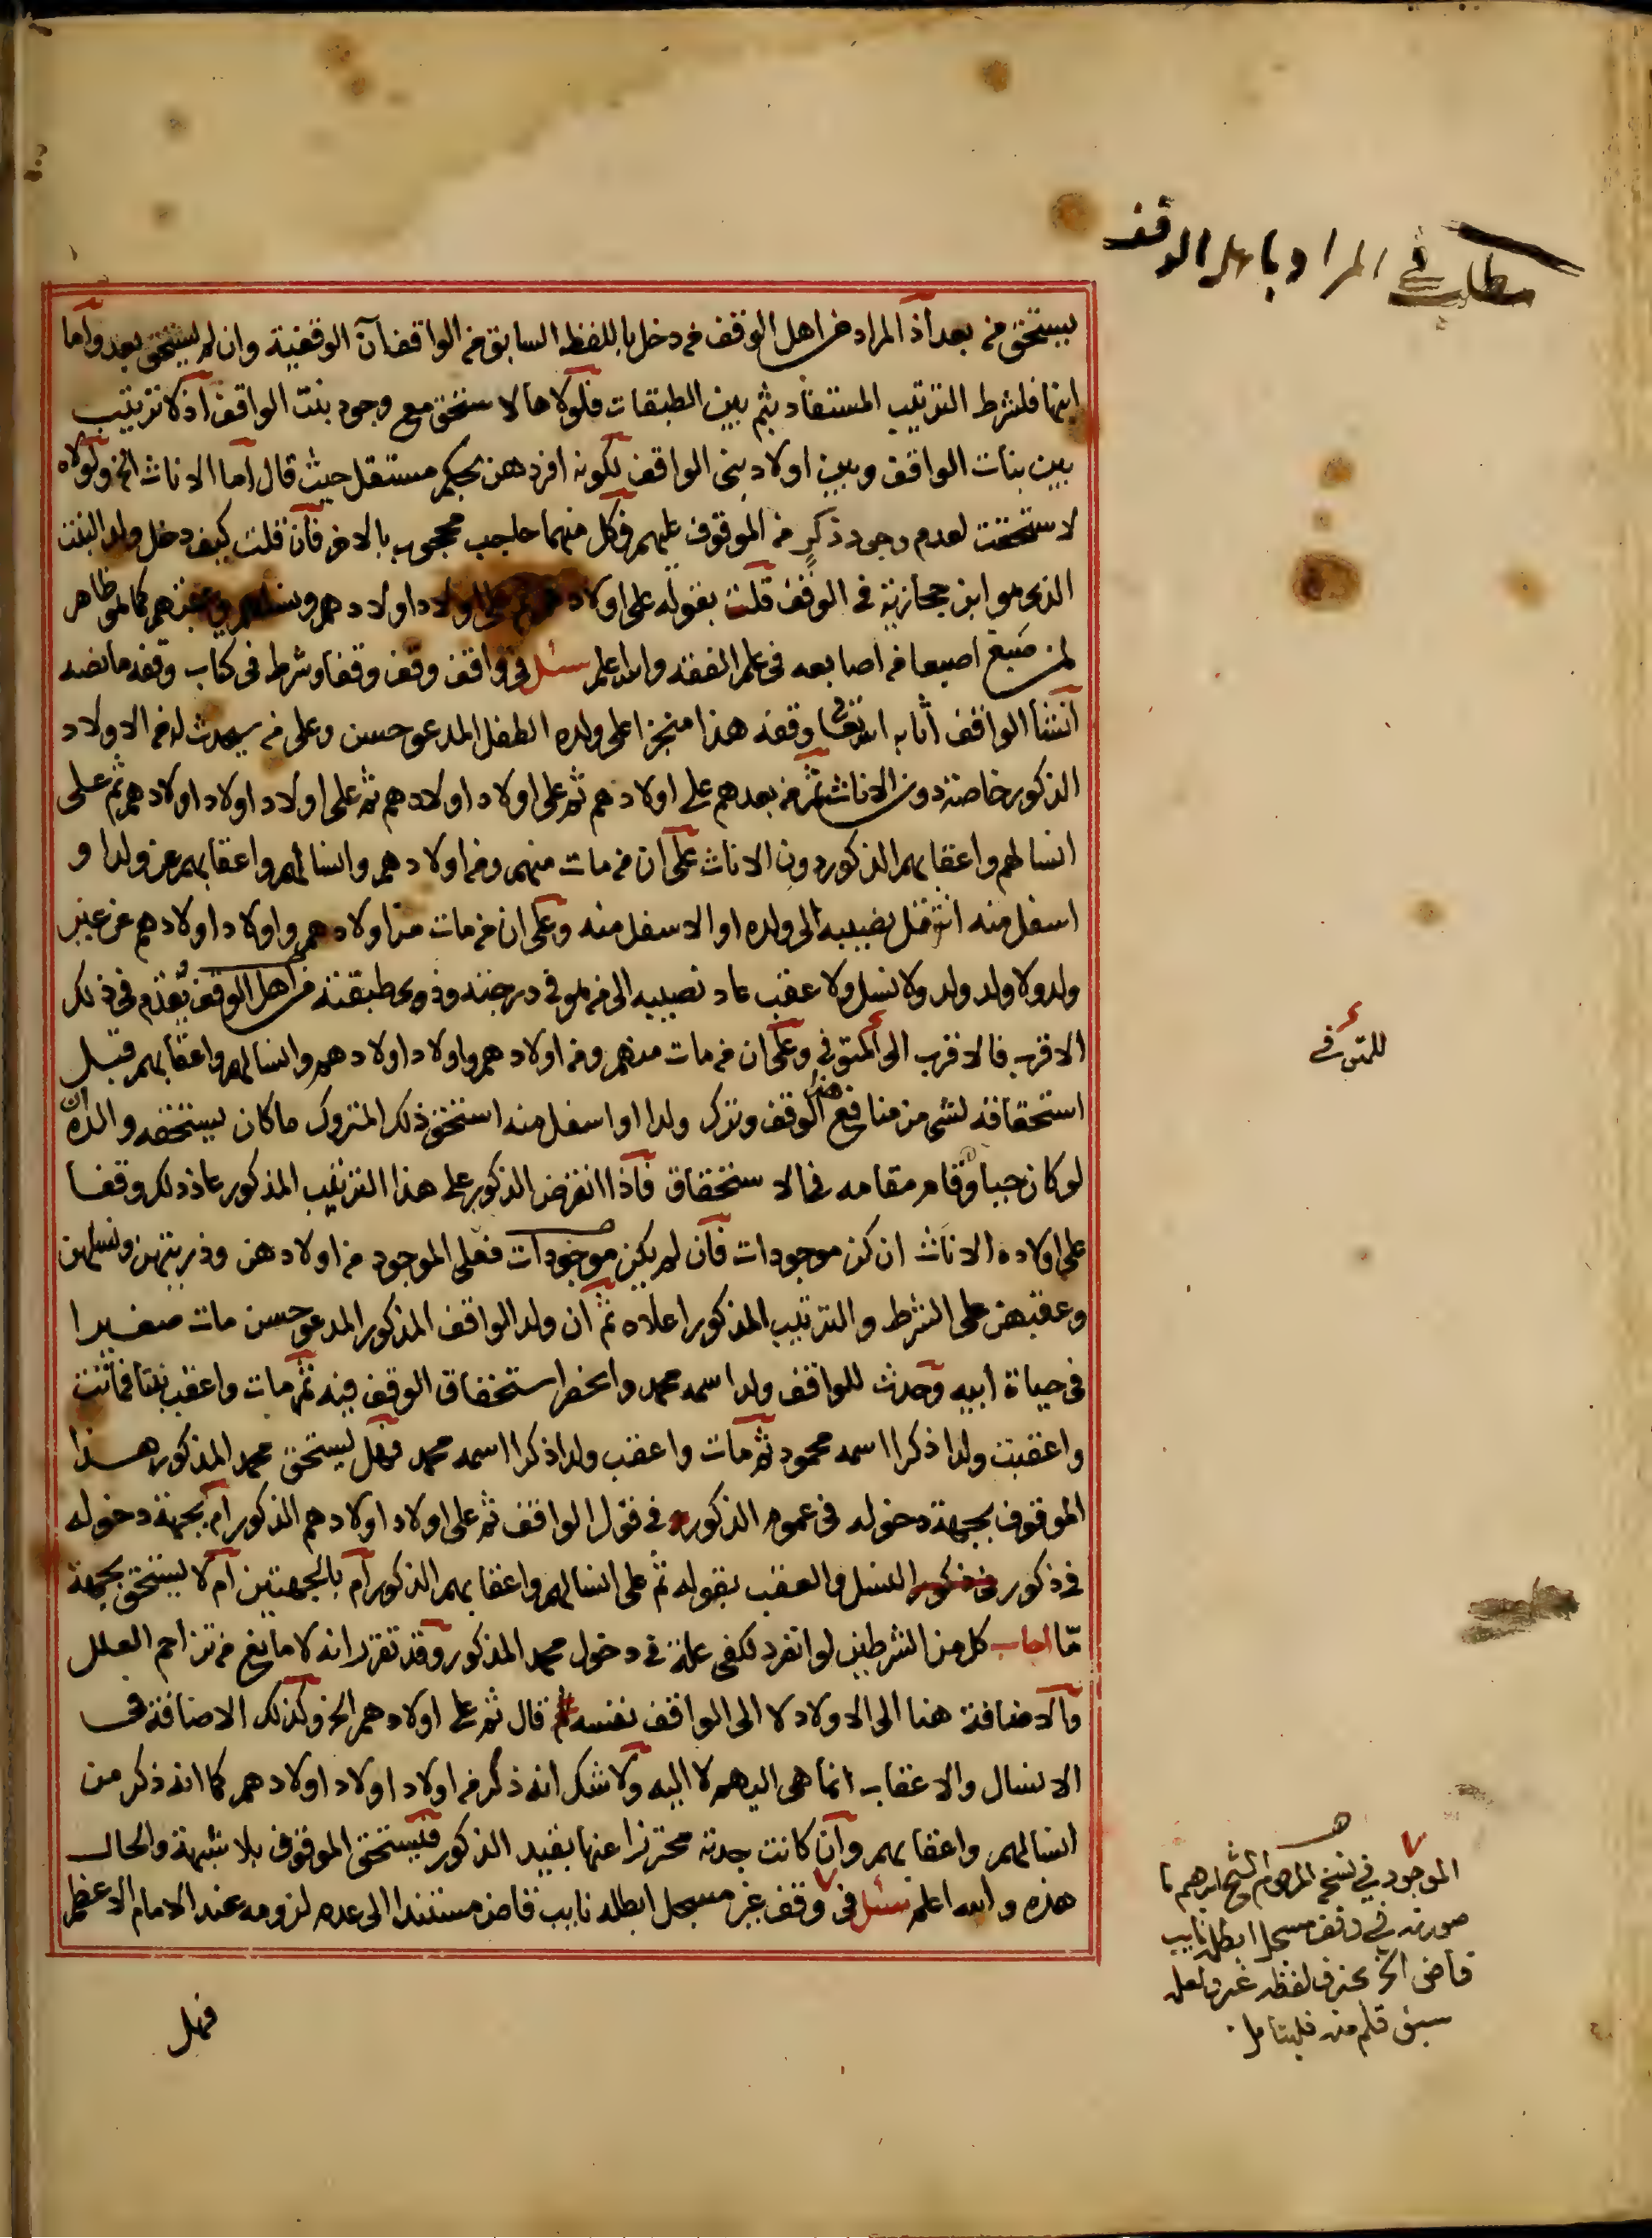 مطلب في المراد باهل الوقف
يستحق من بعد اذ المراد من اهل الوقف من دخل باللفظ السابق من الواقف آن الوقفية وان لم يستحق بعد واما
ابنها فلشرط الترتيب المستفاد بثم بين الطبقات فلولاها لاستحق مع وجود بنت الواقف اذ لا ترتيب
بين بنات الواقف وبين اولاد بني الواقف لكونه افردهن بحكم مستقل حيث قال اما الاناث الخ ولولاه
لاستحقت لعدم وجود ذكر من الموقوف عليهم فكل منهما حاجب محجوب بالاخر فان قلت كيف دخل ولد البنت
الذي هو ابن حجازية في الوقف قلت بقوله على اولادهم ثم على اولاد اولادهم ونسلهم وعقبهم كما هو ظاهر
لمن صبغ اصبعا من اصابعه في علم الفقه والله اعلم سئل في واقف وقف وقفا وشرط في كتاب وقفه ما نصه
انشأ الواقف اثابه الله تعالى وقفه هذا منجزا على ولده الطفل المدعو حسن وعلى من سيحدث له من الاولاد
الذكور خاصة دون الاناث ثم من بعدهم على اولادهم ثم على اولاد اولادهم ثم على اولاد اولاد اولادهم ثم على
انسالهم واعقابهم الذكور دون الاناث على ان من مات منهم ومن اولادهم وانسالهم واعقابهم عن ولد او
اسفل منه انتقل نصيبه الى ولده او الاسفل منه وعلى ان من مات من اولادهم واولاد اولادهم عن غير
ولد ولا ولد ولد ولا نسل ولا عقب عاد نصيبه الى من هو في درجته وذوي طبقته من اهل الوقف يقدم في ذلك
الاقرب فالاقرب الى المتوفي وعلى ان من مات منهم ومن اولادهم واولاد اولادهم وانسالهم واعقابهم قبل
للمتوفي
استحقاقه لشي من منافع هذا الوقف وترك ولدا او اسفل منه استحق ذلك المتروك ما كان يستحقه والده ان
لو كان حيا وقام مقامه في الاستحقاق فاذا انقرض الذكور على هذا الترتيب المذكور عاد ذلك وقفا
على اولاده الاناث ان كن موجودات فان لم يكن موجودات فعلى الموجود من اولادهن وذريتهن ونسلهن
وعقبهن على الشرط والترتيب المذكور اعلاه ثم ان ولد الواقف المذكور المدعو حسن مات صغيرا
في حياة ابيه وحدث للواقف ولد اسمه محمد وانحصر استحقاق الوقف فيه ثم مات واعقب بنتا فماتت
واعقبت ولدا ذكرا اسمه محمود ثم مات واعقب ولدا ذكرا اسمه محمد فهل يستحق محمد المذكور هذا
الموقوف بجهة دخوله في عموم الذكور في قول الواقف ثم على اولاد اولادهم الذكور ام بجهة دخوله
في ذكور النسل والعقب بقوله ثم على انسالهم واعقابهم الذكور ام بالجهتين ام لا يستحق بجهة
ما اجاب كل من الشرطين لو انفرد لكفى علة في دخول محمد المذكور وقد تقرر انه لا مانع من تزاحم العلل
والاضافة هنا الى الاولاد لا الى الواقف نفسه قال ثم على اولادهم الخ وكذلك الاضافة في
الانسال والاعقاب انما هي اليهم لا اليه ولا شك انه ذكر من اولاد اولاد اولادهم كما انه ذكر من
انسالهم واعقابهم وان كانت جدته محترزا عنها بقيد الذكور فيستحق الموقوف بلا شبهة والحال
هذه والله اعلم سئل في وقف غير مسجل ابطله نايب قاض مستندا الى عدم لزومه عند الامام الاعظم
الموجود في نسخ المرحوم الشيخ ابرهيم ما
صورته في وقف مسجل ابطله نايب
قاض الخ بحذف لفظه غير ولعل
سبق قلم منه فليتامل
فهل